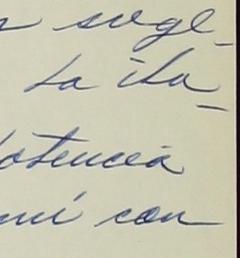 suge-
La ila-
potencia
mí con